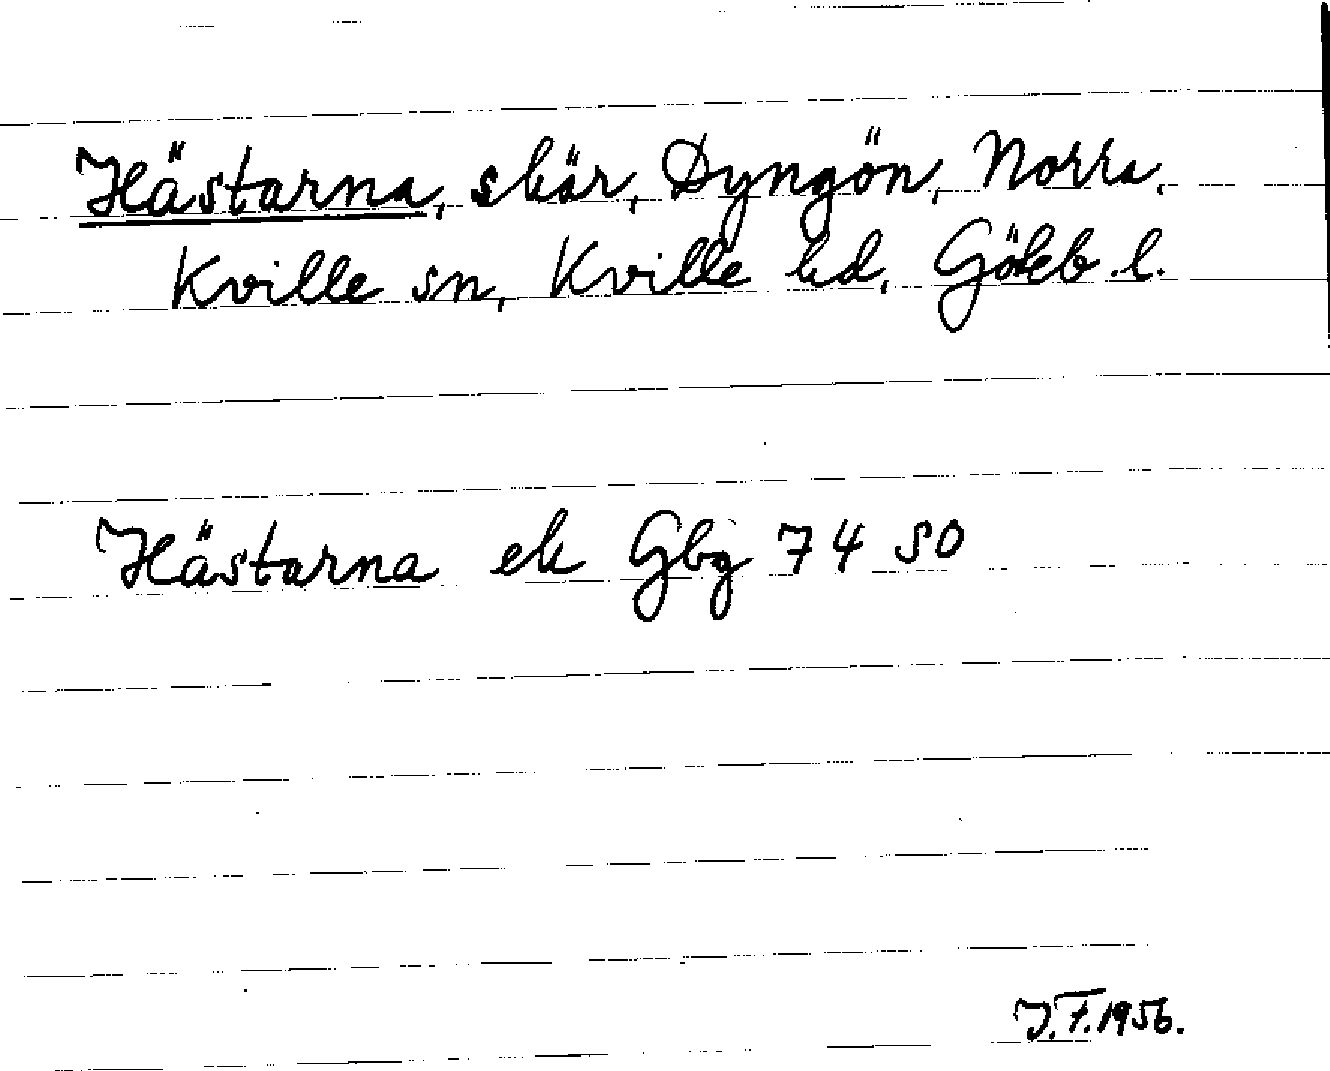 Hästarna, skär, Dyngön, Norra.
Kville sn, Kville hd, Götеb.l.
Hästarna ek Gbg 74 SO
J.F.1956.